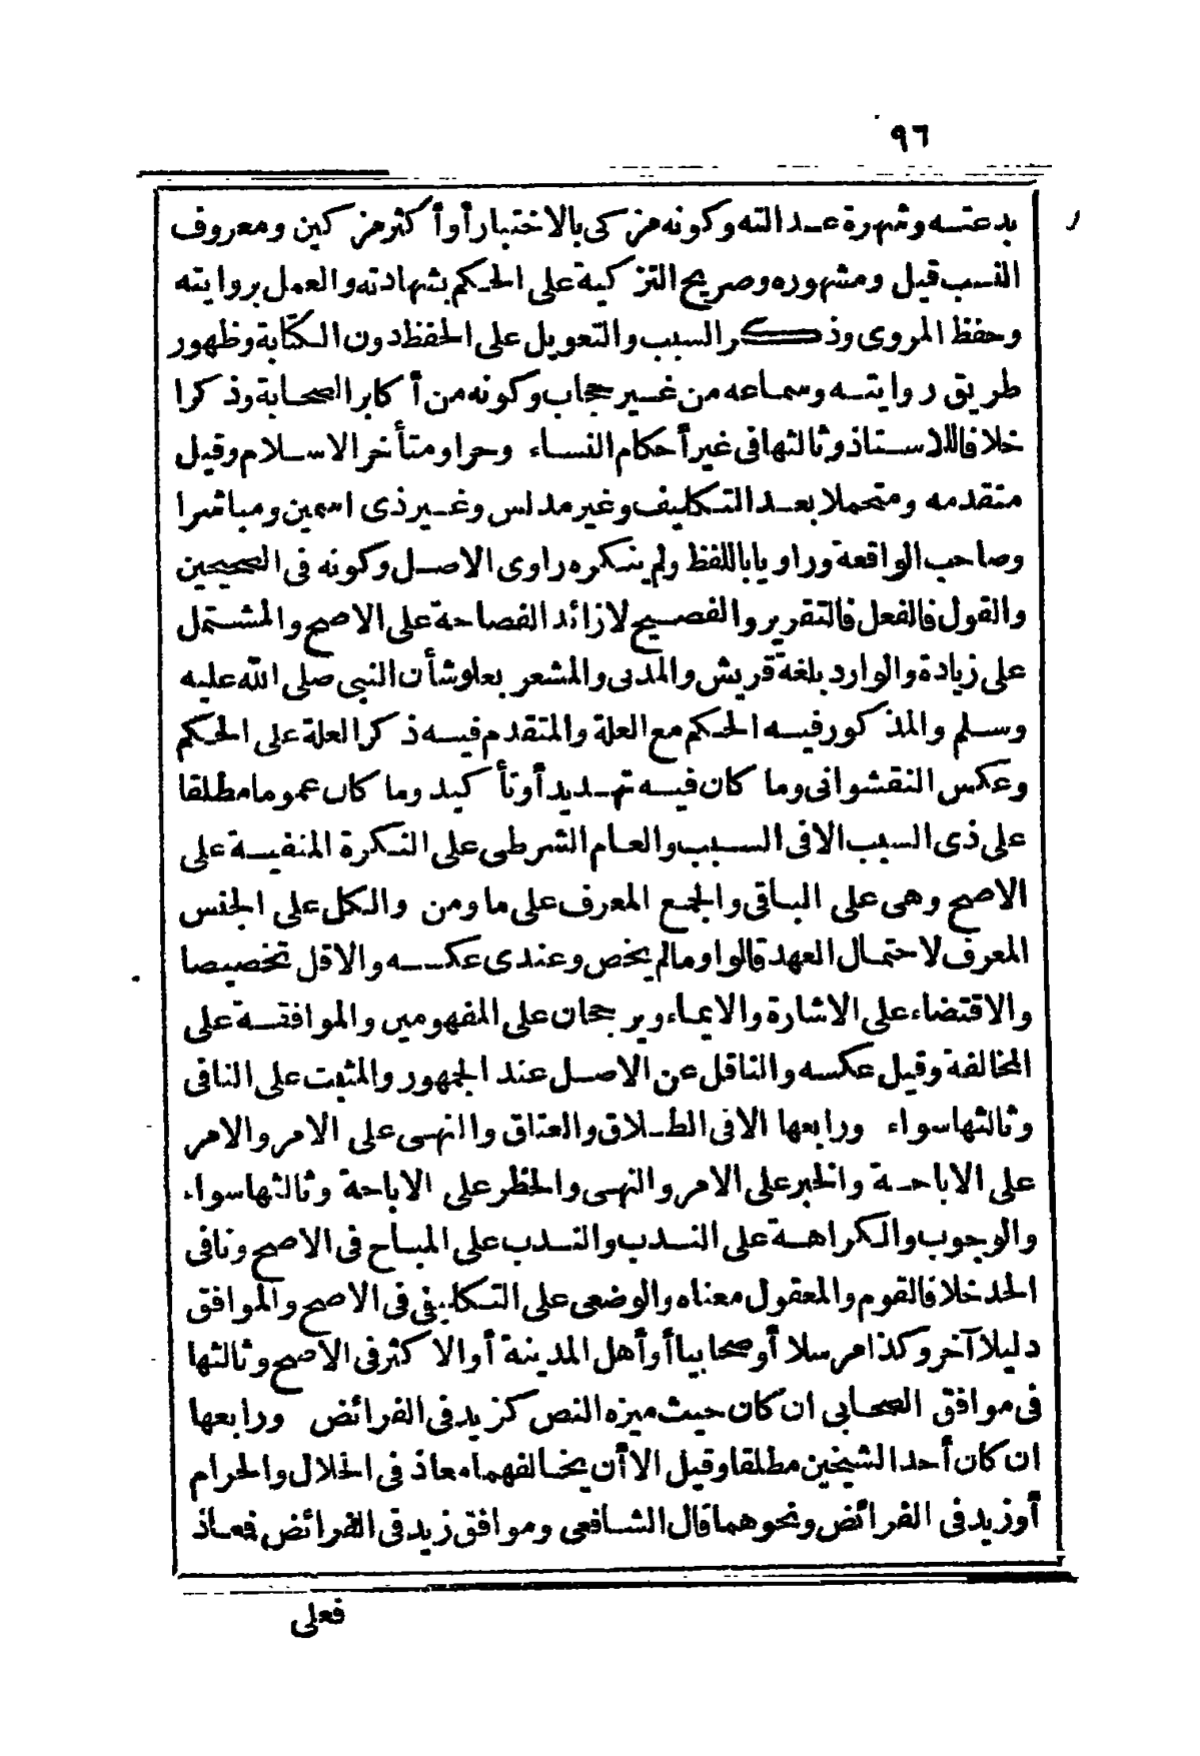 ٩٦
بدعته وشهرة عدالته وكونه مزكى بالاختبار أو أكثر مزكين ومعروف
النسب قيل ومشهوره وصريح التزكية على الحكم بشهادته والعمل بروايته
وحفظ المروى وذكر السبب والتعويل على الحفظ دون الكتابة وظهور
طريق روايته وسماعه من غير حجاب وكونه من أكابر الصحابة وذكرا
خلافا للاستاذ وثالثها فى غير أحكام النساء وحرا ومتأخر الاسلام وقيل
متقدمه ومتحملا بعد التكليف وغير مدلس وغير ذى اسمين ومباشرا
وصاحب الواقعة وراويا باللفظ ولم ينكره راوى الاصل وكونه فى الصحيحين
والقول فالفعل فالتقرير والفصيح لا زائد الفصاحة على الاصح والمشتمل
على زيادة والوارد بلغة قريش والمدنى والمشعر بعلو شأن النبى صلى الله عليه
وسلم والمذكور فيه الحكم مع العلة والمتقدم فيه ذكر العلة على الحكم
وعكس النقشوانى وما كان فيه تهديد أو تأكيد وما كان عموما مطلقا
على ذى السبب الا فى السبب والعام الشرطى على النكرة المنفية على
الاصح وهى على الباقى والجمع المعرف على ما ومن والكل على الجنس
المعرف لاحتمال العهد قالوا وما لم يخص وعندى عكسه والاقل تخصيصا
والاقتضاء على الاشارة والايماء ويرجحان على المفهومين والموافقة على
المخالفة وقيل عكسه والناقل عن الاصل عند الجمهور والمثبت على النافى
وثالثها سواء ورابعها الا فى الطلاق والعتاق والنهى على الامر والامر
على الاباحة والخبر على الامر والنهى والحظر على الاباحة وثالثها سواء
والوجوب والكراهة على الندب والندب على المباح فى الاصح ونافى
الحد خلافا لقوم والمعقول معناه والوضعى على التكليفى فى الاصح والموافق
دليلا آخر وكذا مرسلا أو صحابيا أو أهل المدينة أو الاكثر فى الاصح وثالثها
فى موافق الصحابى ان كان حيث ميزه النص كزيد فى الفرائض ورابعها
ان كان أحد الشيخين مطلقا وقيل الا أن يخالفهما معاذ فى الحلال والحرام
أو زيد فى الفرائض ونحوهما قال الشافعى وموافق زيد فى الفرائض فمعاذ
فعلى